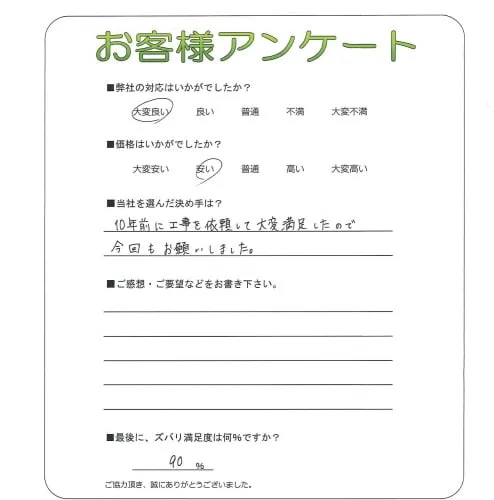 お客様アンケート
■弊社の対応はいかがでしたか?
大変良い 良い 普通 不満 大変不満
■価格はいかがでしたか?
大変安い 安い 普通 高い 大変高い
■当社を選んだ決め手は?
10年前に工事を依頼して大変満足したので
今回もお願いしました。
■ご感想・ご要望などをお書き下さい。
■最後に、ズバリ満足度は何%ですか?
90 %
ご協力頂き、誠にありがとうございました。